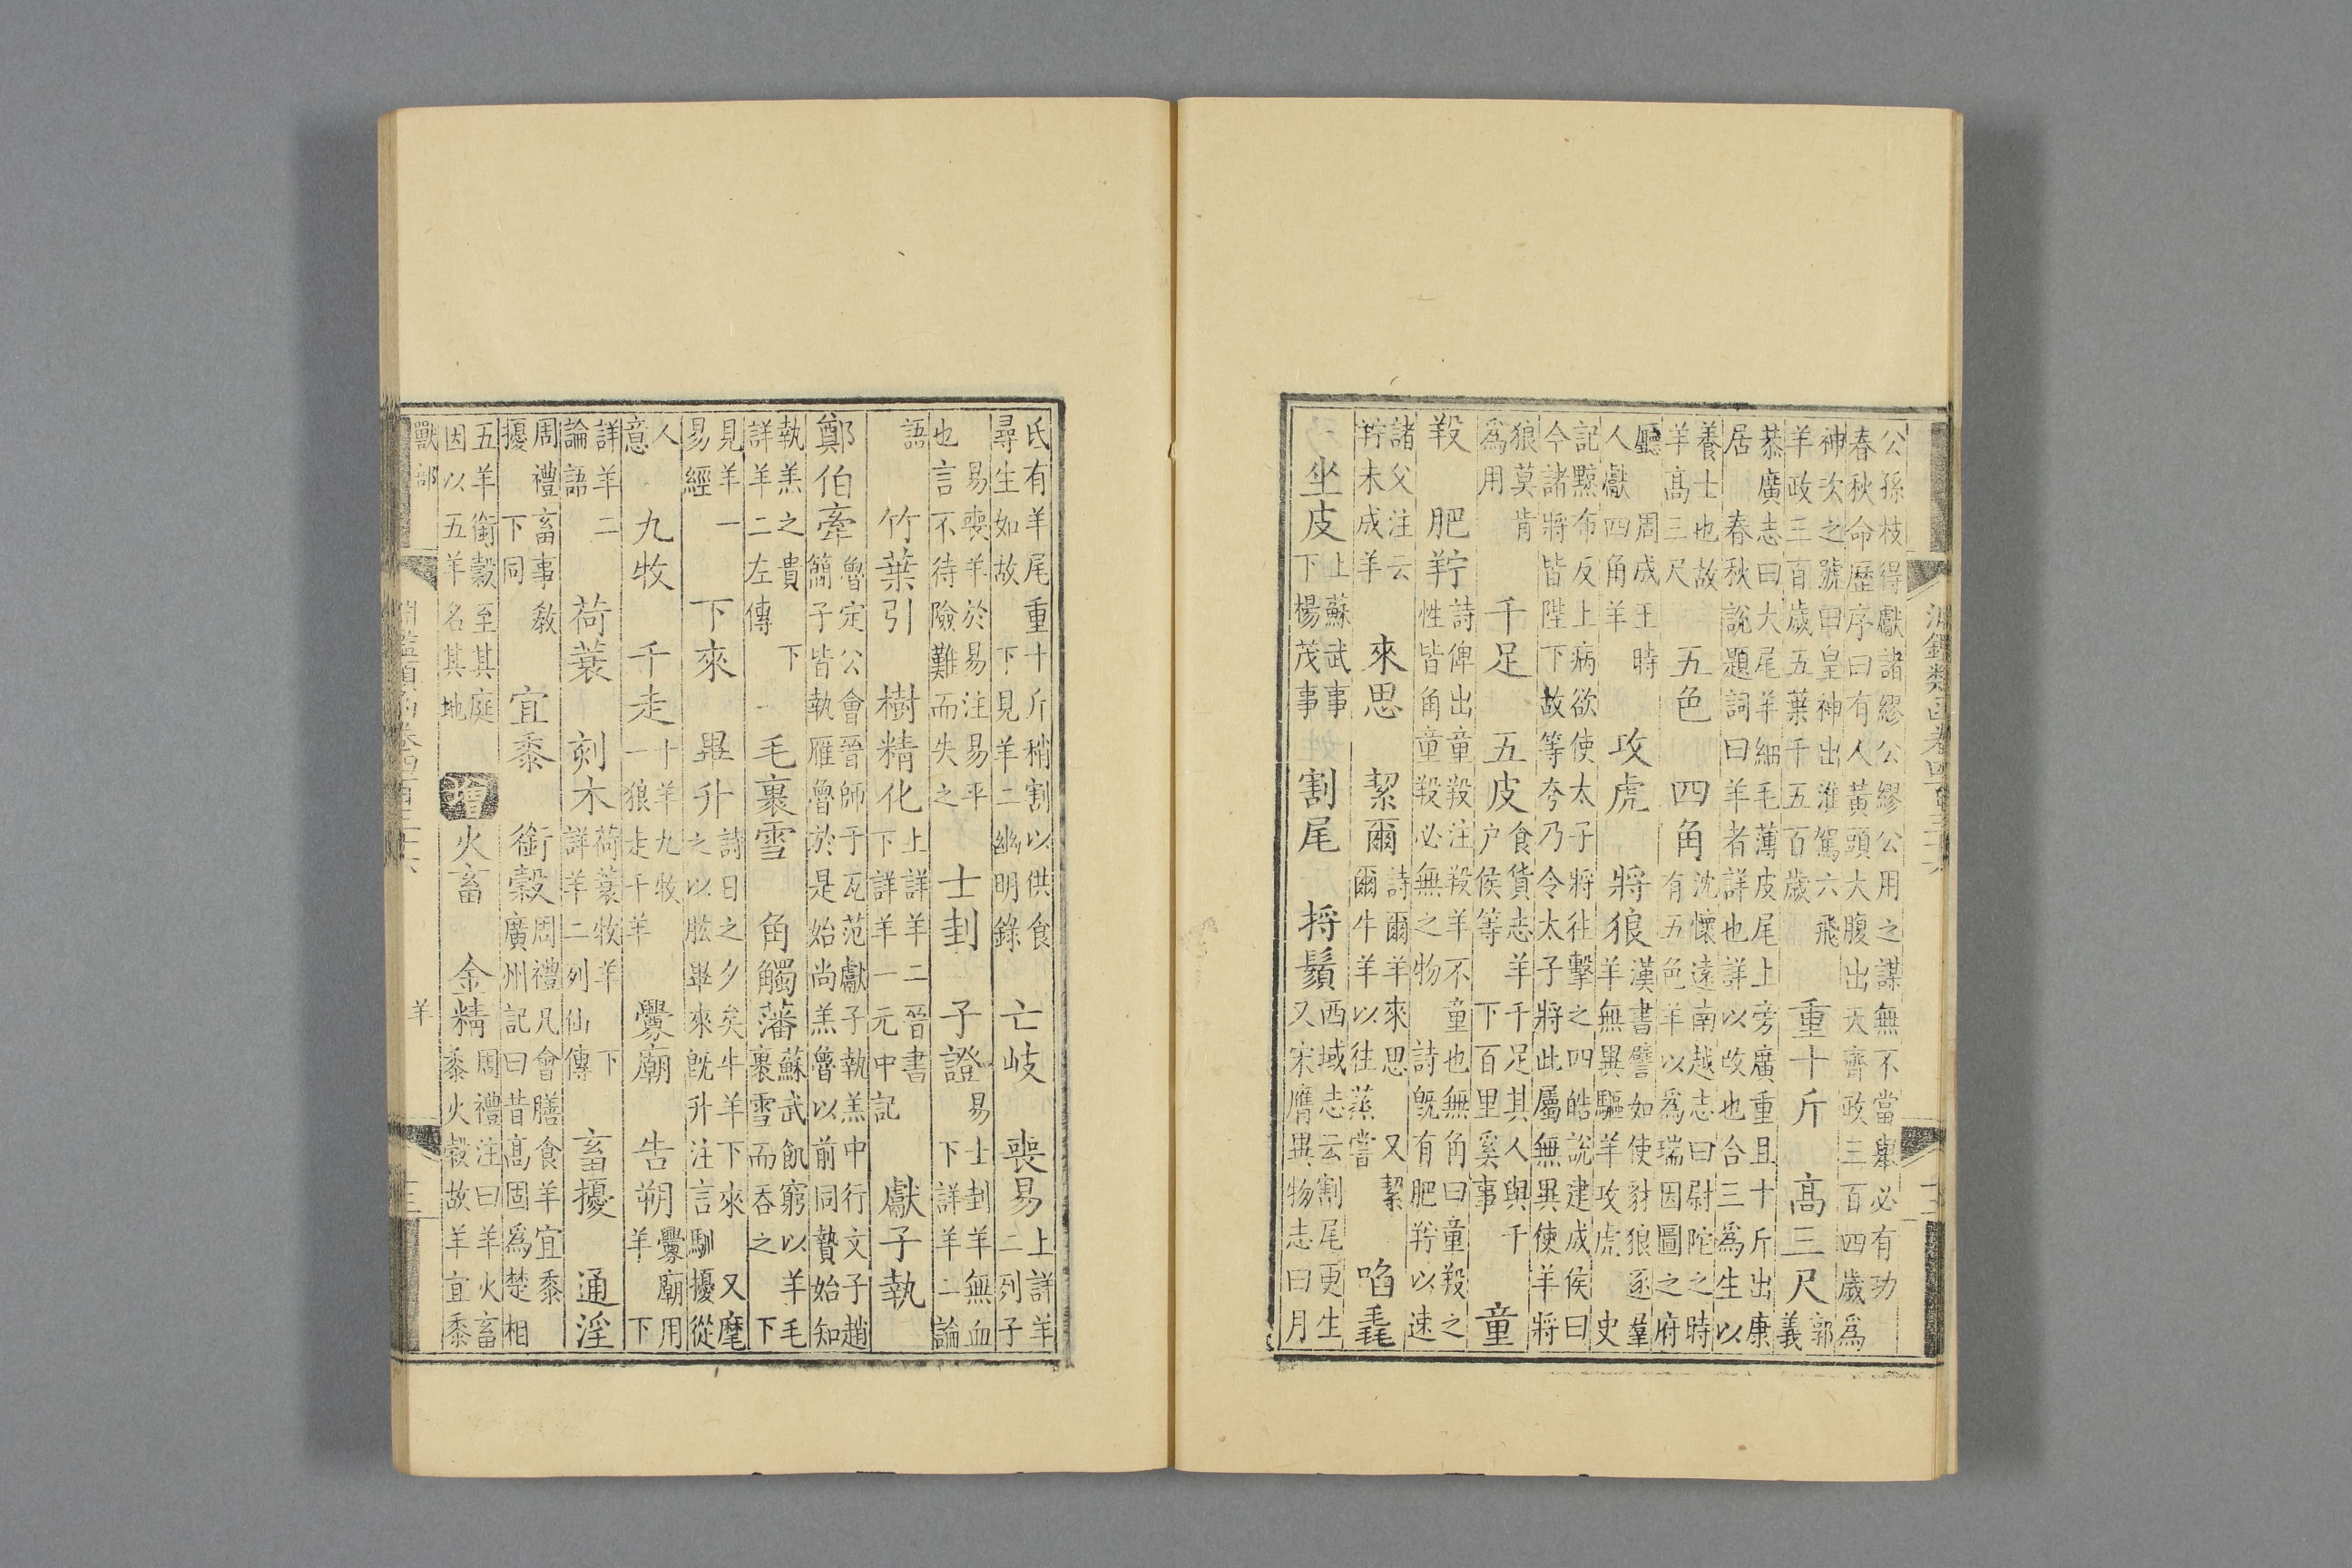 淵鑑類函卷四百三十六 三
公孫枝得獻諸繆公繆公用之謀無不當舉必有功
春秋命歷序曰有人黃頭大腹出天齊政三百四歲爲
神次之號曰皇神出淮駕六飛
羊政三百歲五葉千五百歲
重十斤 高三尺
郭
義
恭廣志曰大尾羊細毛薄皮尾上旁廣重且十斤出康
居 春秋說題詞曰羊者詳也詳以改也合三爲生以
養士也故
羊高三尺
五色 四角
沈懷遠南越志曰尉陀之時
有五色羊以爲瑞因圖之府
廳 周成王時
人獻四角羊
攻虎 將狼
漢書譬如使豺狼逐羣
羊無異驅羊攻虎 史
記黥布反上病欲使太子將往擊之四皓說建成侯曰
今諸將皆陛下故等夸乃令太子將此屬無異使羊將
狼莫肯
爲用
千足 五皮
食貨志 羊千足其人與千
户侯等 下百里奚事
童
羖 肥羜
詩俾出童羖注羖羊不童也無角曰童羖之
性皆角童羖必無之物 詩旣有肥羜以速
諸父注云
羜未成羊
來思 絜爾
詩爾羊來思 又絜
爾牛羊以往蒸嘗
㗖毳
坐皮
上蘇武事
下楊茂事
割尾 捋鬚
西域志云割尾更生
又宋膺異物志曰月
氏有羊尾重十斤稍割以供食
尋生如故 下見羊二幽明錄
亡岐 喪易
上詳羊
二列子
易喪羊於易注易平
也言不待險難而失之
士刲 子證
易士刲羊無血
下詳羊二論
語
竹葉引 樹精化
上詳羊二晉書
下詳羊一元中記
獻子執
鄭伯牽
魯定公會晉師于瓦范獻子執羔中行文子趙
簡子皆執雁魯於是始尚羔魯以前同贄始知
執羔之貴 下
詳羊二左傳
毛裹雪 角觸藩
蘇武飢窮以羊毛
裹雪而吞之 下
見羊一
易經
下來 畢升
詩曰之夕矣牛羊下來 又麾
之以肱畢來旣升注言馴擾從
人
意
九牧 千走
十羊九牧
一狼走千羊
釁廟 告朔
釁廟用
羊 下
詳羊二
論語
荷蓑 刻木
荷蓑牧羊 下
詳羊二列仙傳
畜擾 通淫
周禮畜事教
擾 下同
宜黍 銜穀
周禮凡會膳食羊宜黍
廣州記曰昔高固爲楚相
五羊銜穀至其庭
因以五羊名其地
增 火畜 金精
周禮注曰羊火畜
黍火穀故羊宜黍
獸部 淵鑑類函卷四百三十六 羊 三